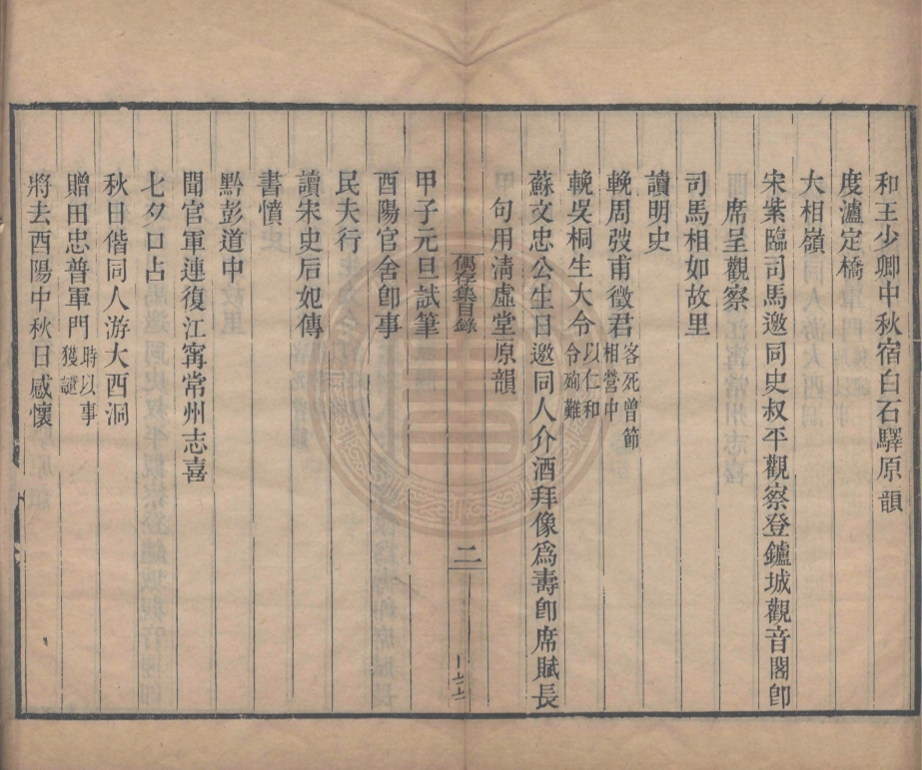 和王少卿中秋宿白石驛原韻
度瀘定橋
大相嶺
宋紫臨司馬邀同史叔平觀察登鑪城觀音閣卽
席呈觀察
司馬相如故里
讀明史
輓周弢甫徵君客死曾節相營中
輓吳桐生大令以仁和令殉難
蘇文忠公生日邀同人介酒拜像爲壽卽席賦長
句用淸虛堂原韻
偶存集目錄
二
甲子元旦試筆
酉陽官舍卽事
民夫行
讀宋史后妃傳
書憤
黔彭道中
聞官軍連復江甯常州志喜
七夕口占
秋日偕同人游大酉洞
贈田忠普軍門時以事獲譴
將去酉陽中秋日感懷